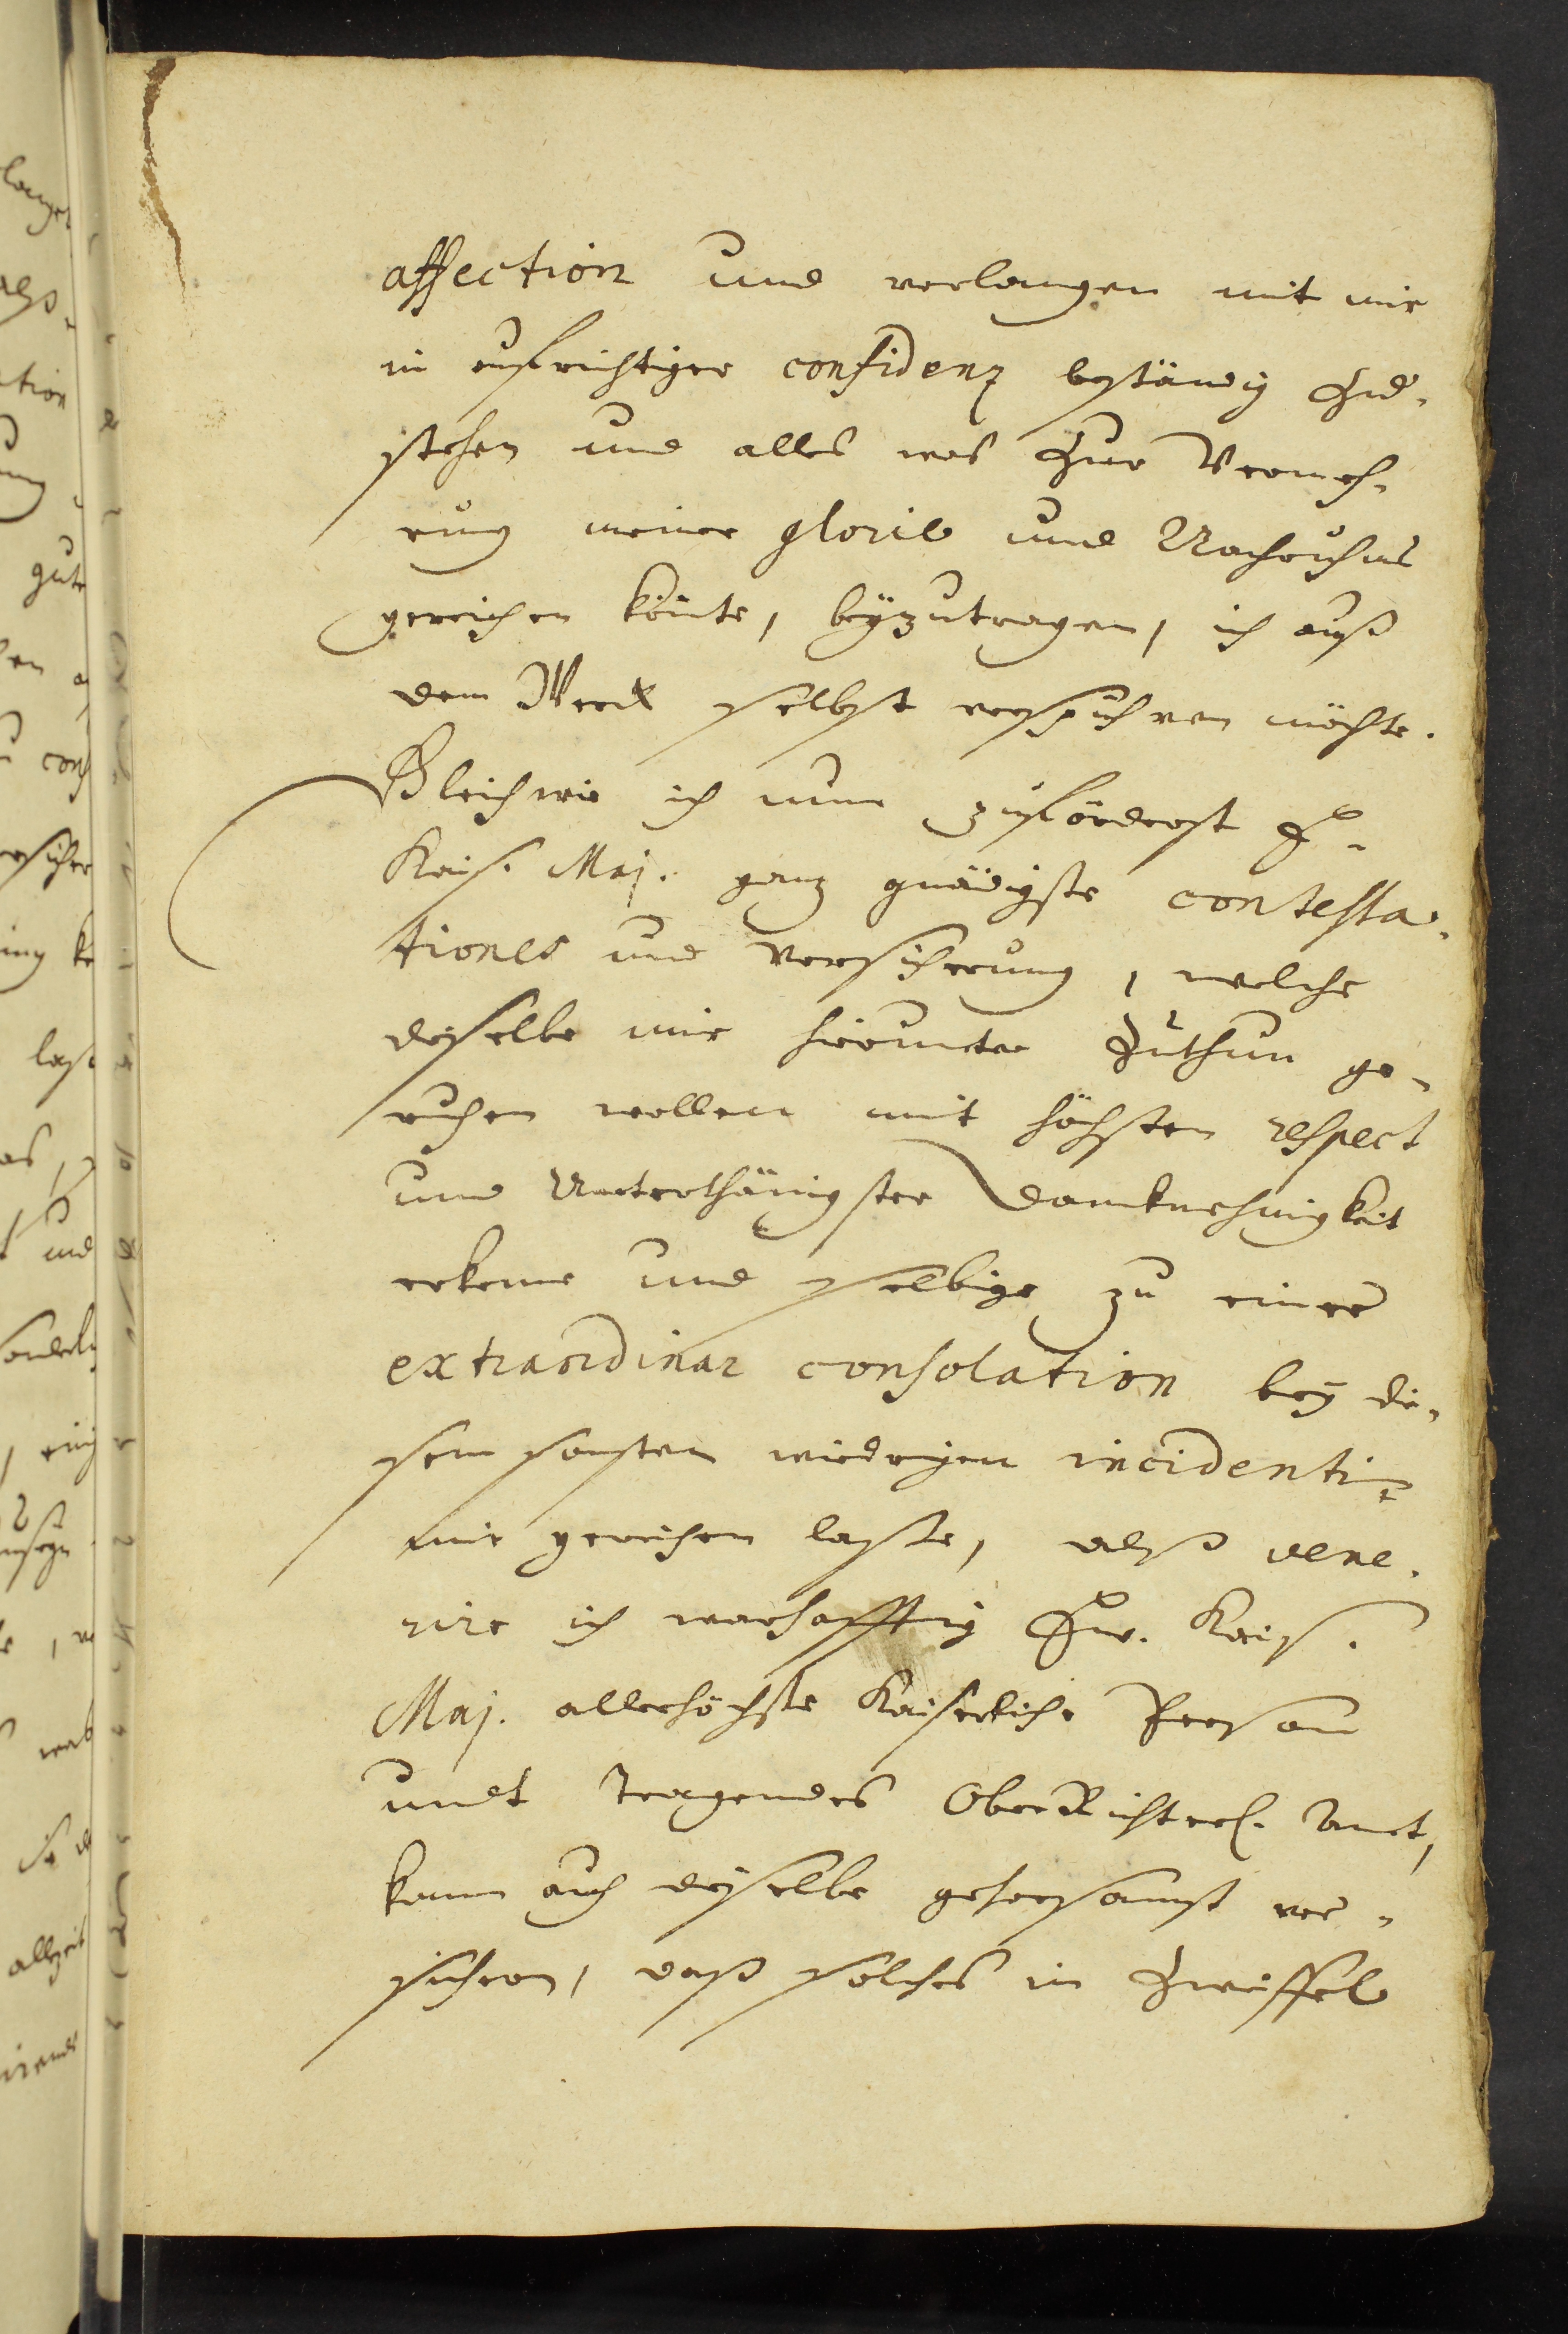 affection und verlangen mit mir
in aufrichtiger confidenz beständig Zu¬
stehen und alles was Zur Vermeh¬
rung meiner glorie und Nachruhms
gereichen könte, beÿzutragen, ich auß
dem Werck selbst verspühren möchte.
Gleichwie ich nun zuförderst E.
Kais. Maj. ganz gnädigste contesta¬
tiones und Versicherung, welche
dieselbe mir hierunter Zuthun ge¬
ruhen wollen mit höchsten respect
und Unterthänigster Dancknehmigkeit
erkenne und selbige zu einer
extraordinar consolation beÿ die¬
sem sonsten wiedrigen incidenti
mir gereichen laße, alß vene¬
rire ich warhafftig Ew. Kais.
Maj. allerhöchste Kaiserliche Person
undt tragendes OberRichterl. Amt,
kann auch dieselbe gehorsamst ver¬
sichern, daß solches in Zweiffel